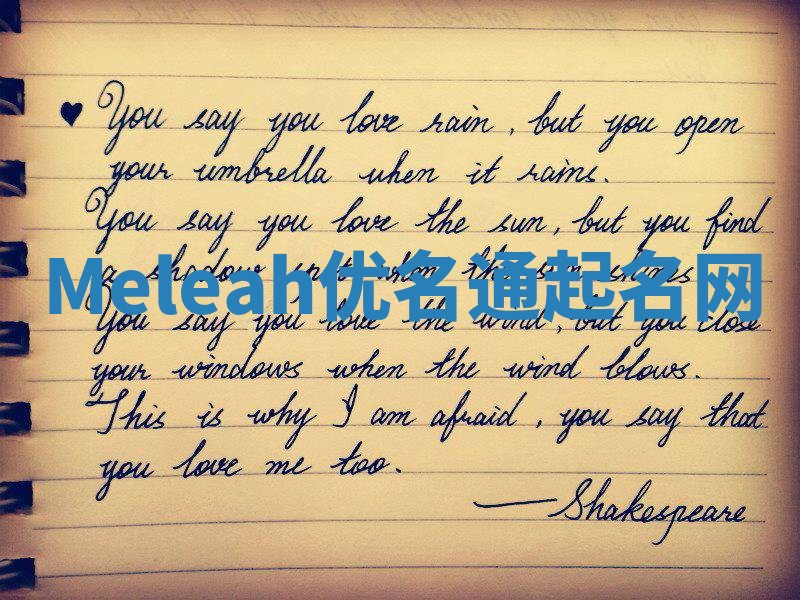 ♥ You say you love rain, but you open
your umbrella when it rains.
You say you love the sun, but you find
a shadow spot when the sun shines
Meleah优名通起名网
You say you love the wind, but you close
your windows when the wind blows.
This is why I am afraid, you say that
you love me too.
—Shakespeare